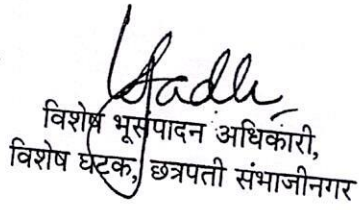 विशेष भूसंपादन अधिकारी,
विशेष घटक, छत्रपती संभाजीनगर